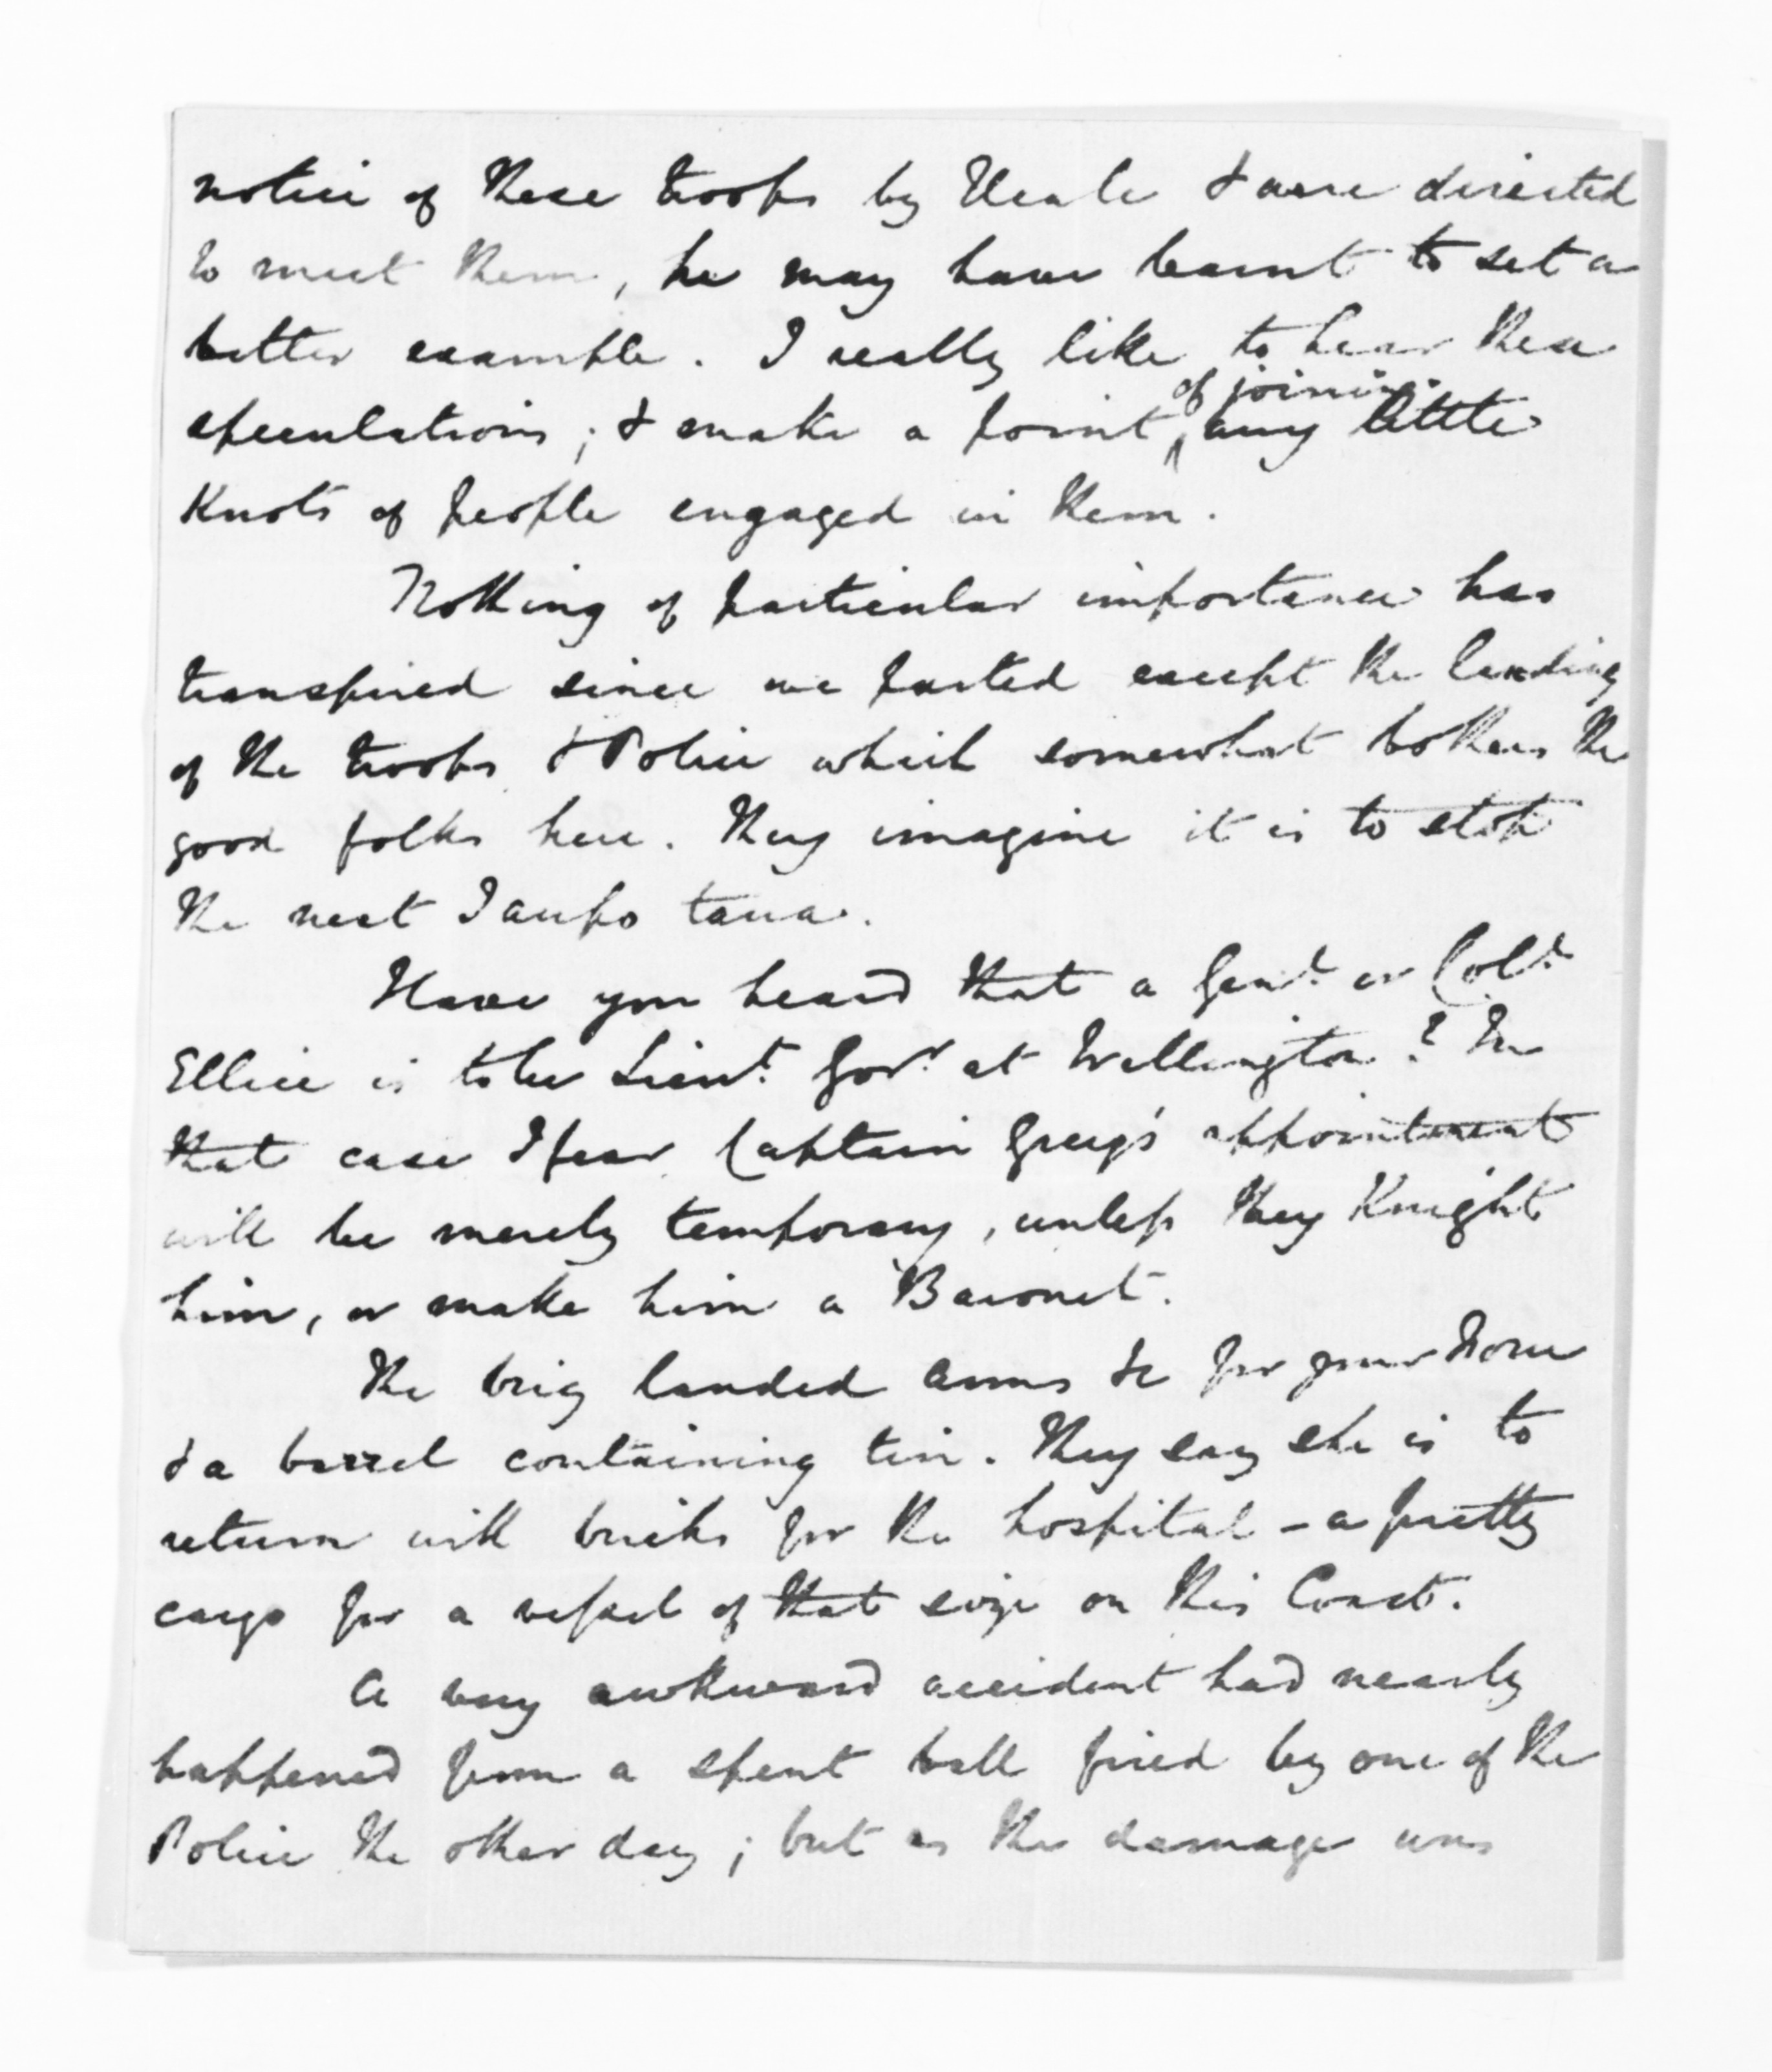 notice of these troops by Heale & were directed
to meet them, he may have learnt to set a
better example. I really like to hear these
of joining
speculations; & make a point any little
Knots of people engaged in them.
Nothing of particular importance has
transpired since we parted except the landing
of the troops & Police which somewhat bothers the
good folks here. They imagine it is to stop
the next Taupo taua.
Have you heard that a Genl. or Coll.
Ellice is to be Lieut. Govr. at Wellington? In
that case I fear Captain Grey's appointment
will be merely temporary, unless they Knight
him, or make him a Baronet.
The brig landed Arms &c for your Force
& a barrel containing tin. They say she is to
return with bricks for the hospital - a pretty
cargo for a vessel of that size on this Coast.
A very awkward accident had nearly
happened from a spent ball fired by one of the
Police the other day; but as the damage was